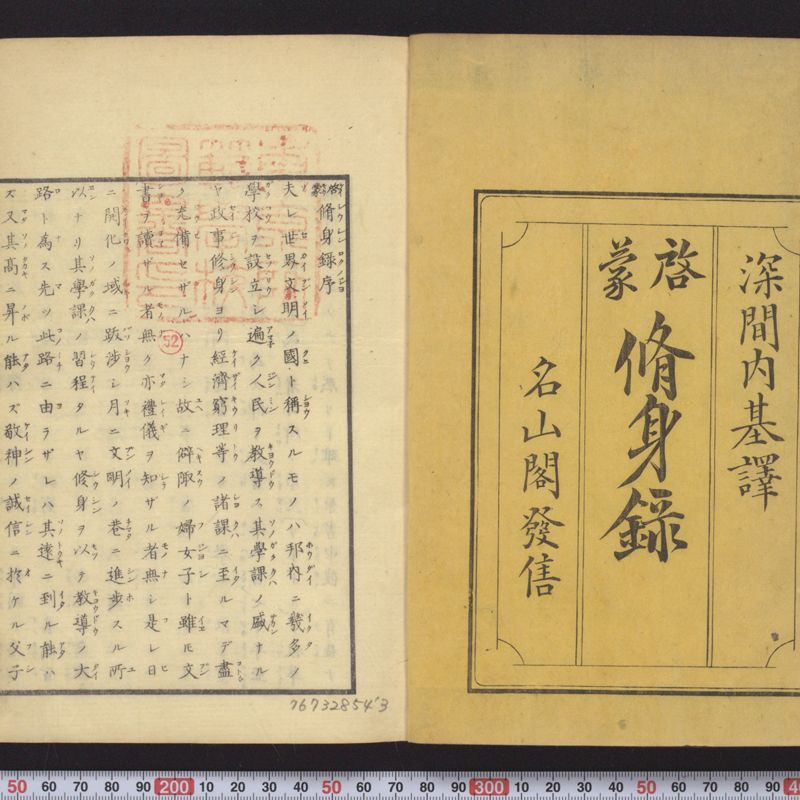 深間内基譯
啓蒙
脩身錄
名山閣發售
啓蒙脩身錄序
夫レ世界文明ノ國ト稱スルモノハ邦內ニ幾多ノ
學校ヲ設立シ遍ク人民ヲ教導ス其學課ノ盛ナル
ヤ政事修身ヨリ經濟窮理等ノ諸課ニ至ルマデ盡
ノ充備セザルハナシ故ニ僻陬ノ婦女子ト雖モ文
書ヲ讀ザル者無ク亦禮儀ヲ知ザル者無シ是レ日
ニ開化ノ域ニ跋渉シ月ニ文明ノ巷ニ進歩スル所
以ナリ其學課ノ習程タルヤ修身ヲ以テ教導ノ大
路ト為ス先ツ此路ニ由ラザレハ其遠ニ到ル能ハ
ズ又其高ニ昇ル能ハズ敬神ノ誠信ニ於ケル父子
52
767328543
50 60 70 80 90 200 10 20 30 40 50 60 70 80 90 300 10 20 30 40 50 60 70 80 90